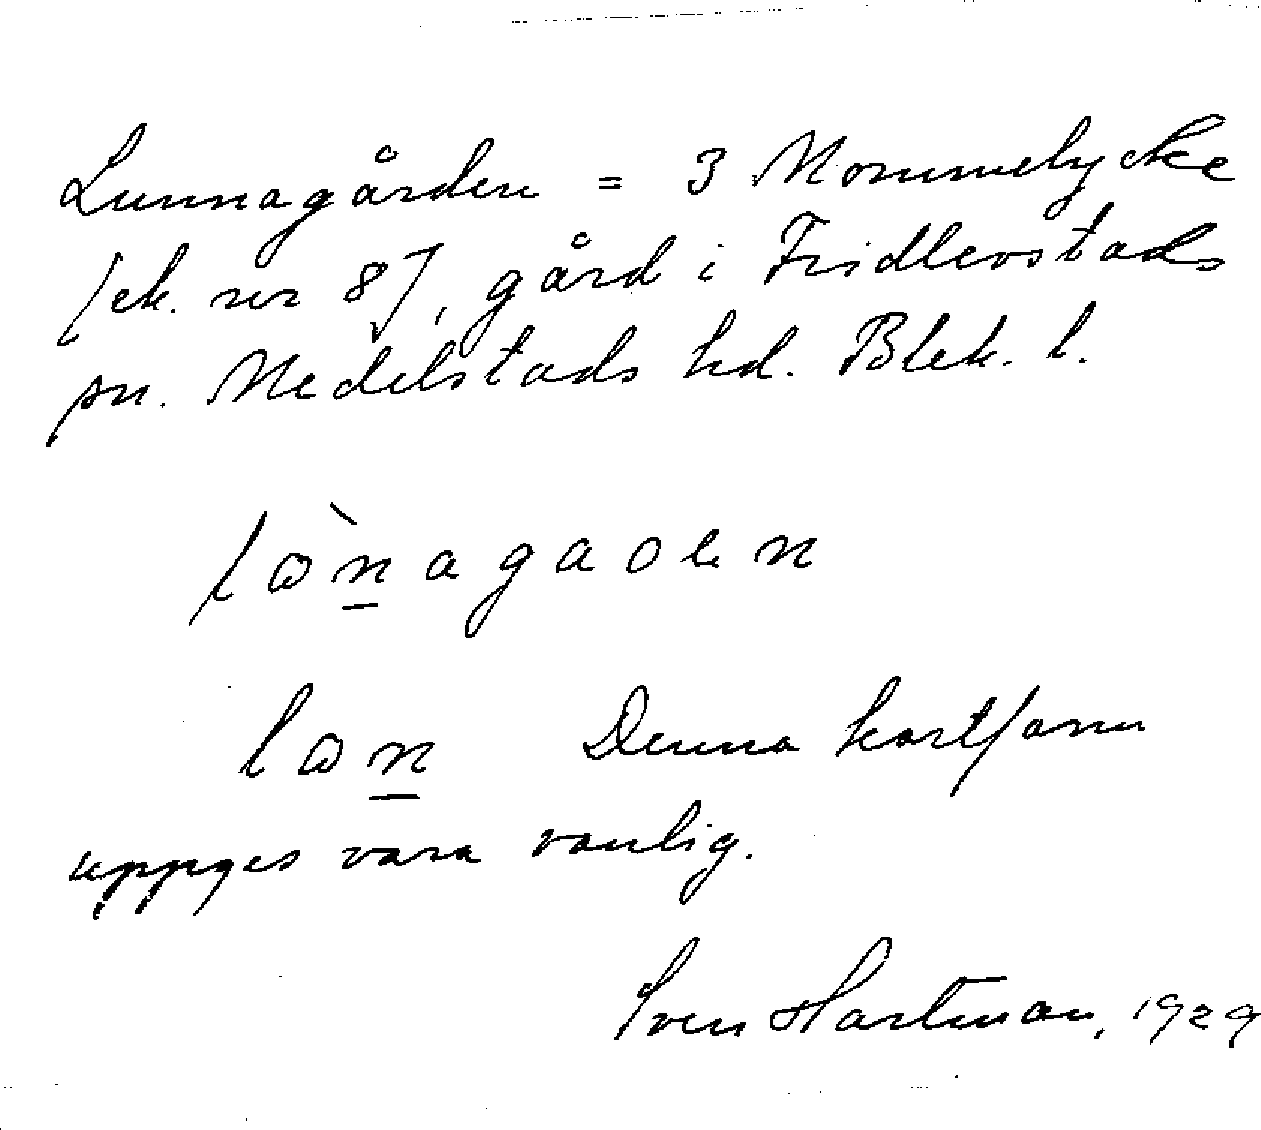 Lunnagården = 3 Mommelycke
[ek. nr 8], gård i Fridlevstads
sn. Medelstads hd. Blek. l.
lɷ̀nagaolen
lɷn Denna kortform
uppges vara vanlig.
Sven Hartman, 1929